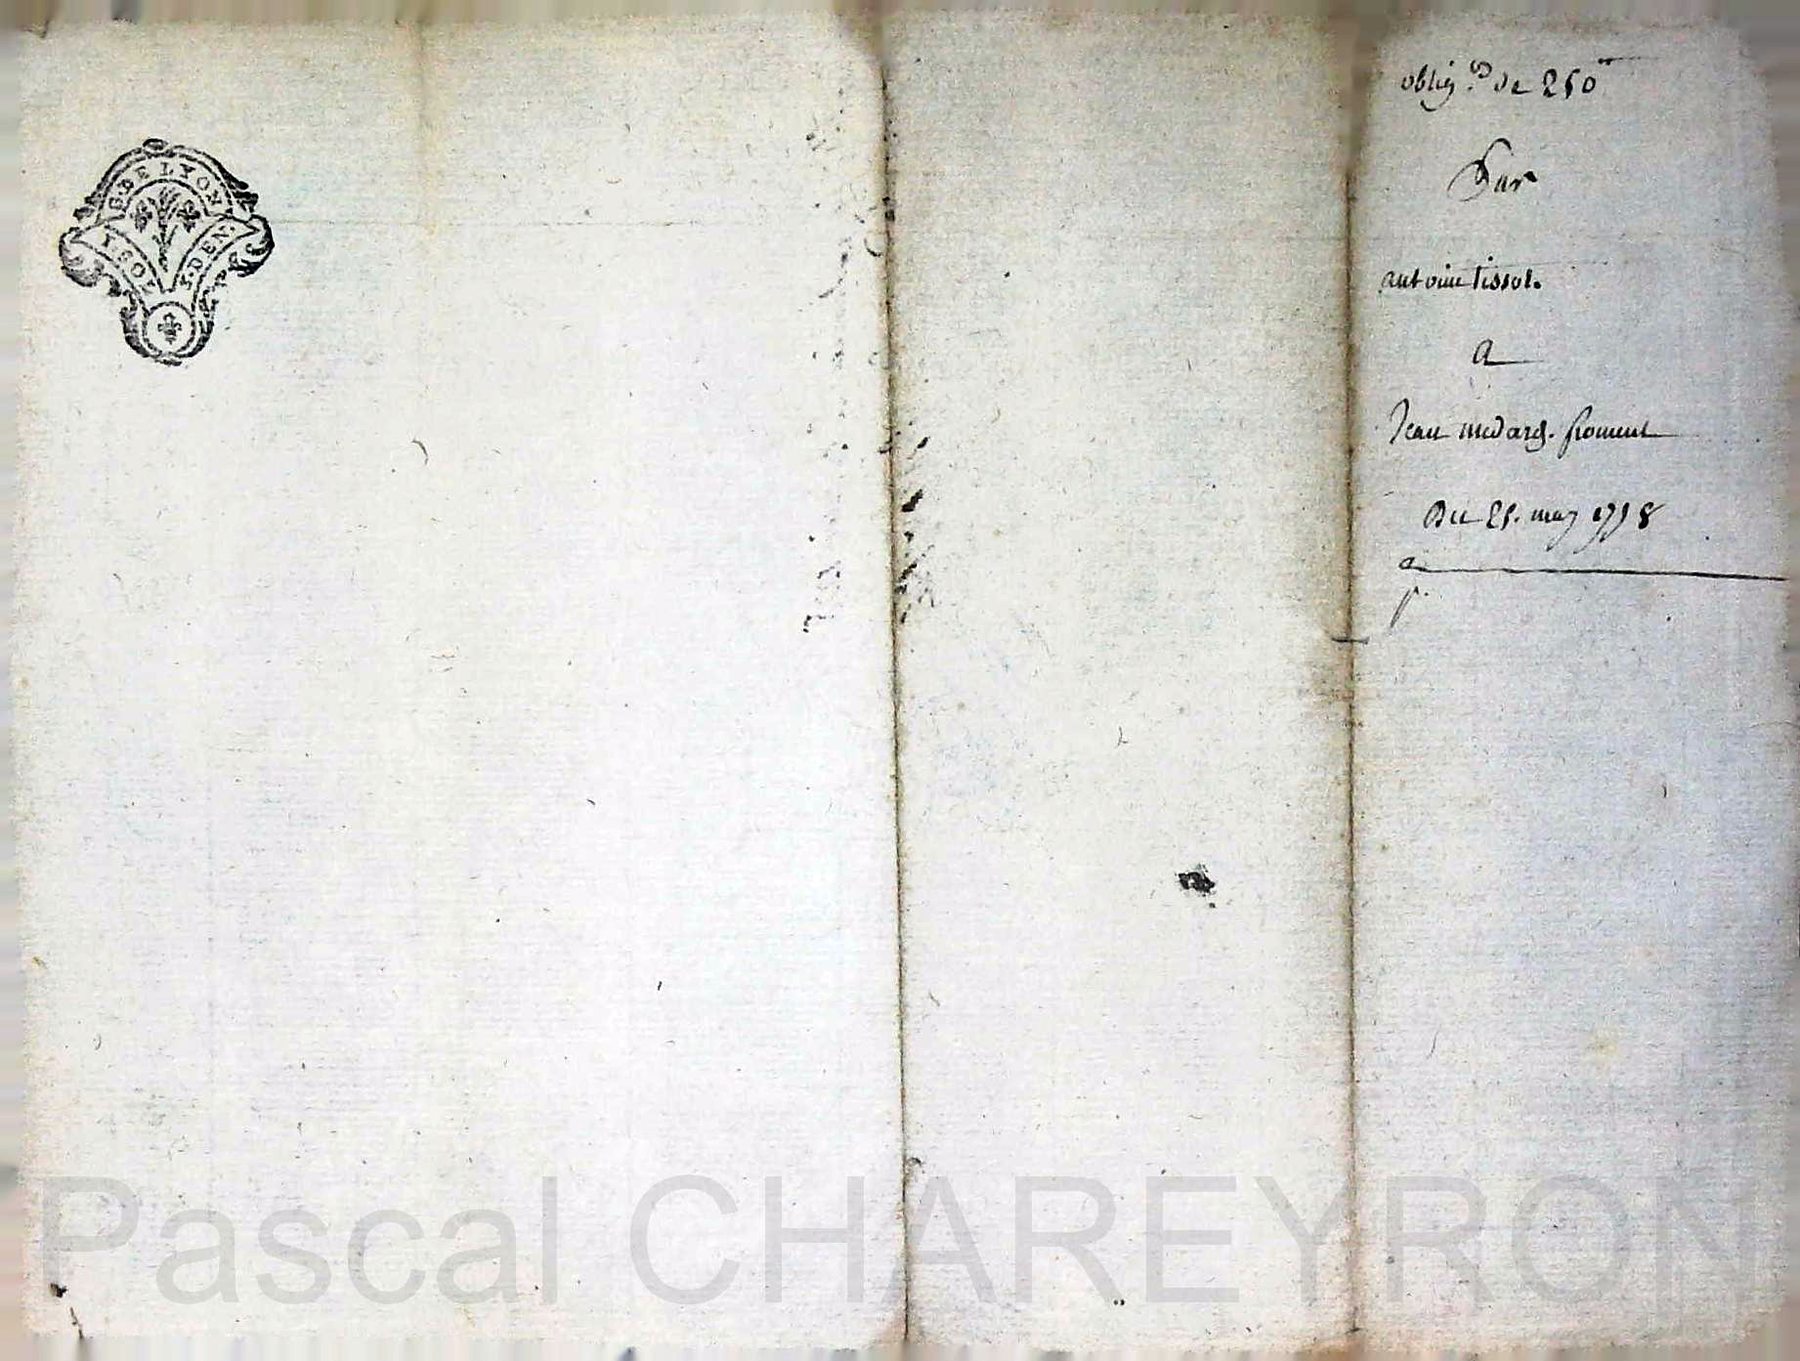 G. DE LYON
1. SOL
S. DEN.
oblig.on de 250tt
Par
antoine tissot.
A
Jean medard. froment
Du 25. may 1758
Pascal CHAREYRON